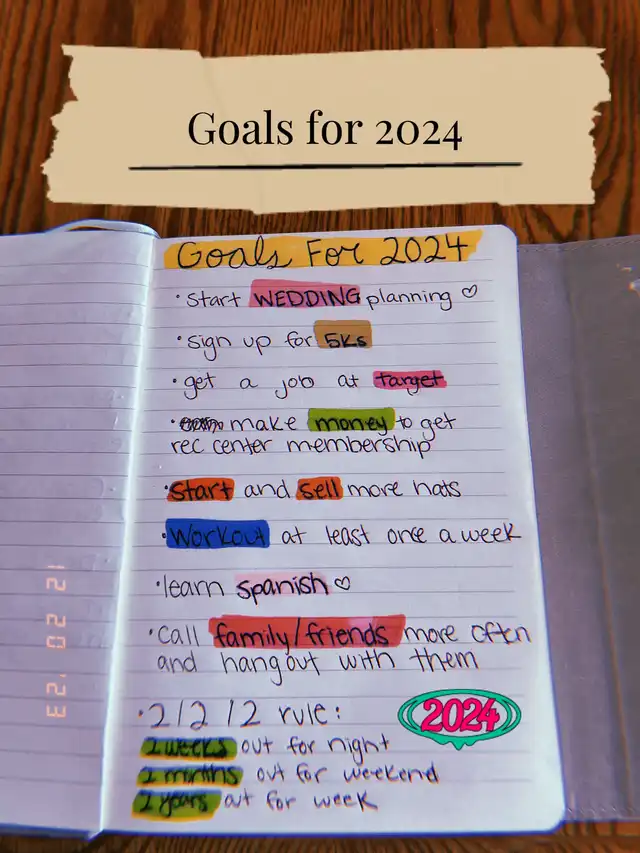 Goals for 2024
Goals For 2024
• Start WEDDING planning ♡
• sign up for 5Ks
• get a job at target
• make money to get
rec center membership
• Start and sell more hats
• Workout at least once a week
• learn spanish ♡
• Call family/friends more often
and hangout with them
• 2/2/2 rule:
2 weeks out for night
2 months out for weekend
2 years out for week
2024
12 02 '23